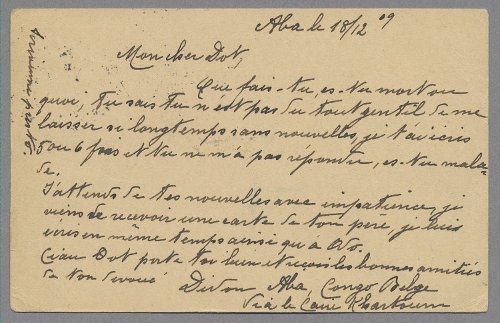 Aba le 18/12 09
Mon cher Dot,
Que fais-tu, es-tu mort ou
quoi, tu sais tu n'est pas du tout gentil de me
laisser si longtemps sans nouvelles, je t'ai écris
5 ou 6 fois et tu ne m'a pas répondu, es-tu mala-
de.
J'attends de tes nouvelles avec impatience, je
viens de recevoir une carte de ton père, je lui
écris en même temps ainsi qu'a
Ciau Dot porte toi bien et reçois les bonnes amitiés
de ton dévoué
Didon Aba, Congo Belge
Via le Caire Khartoum